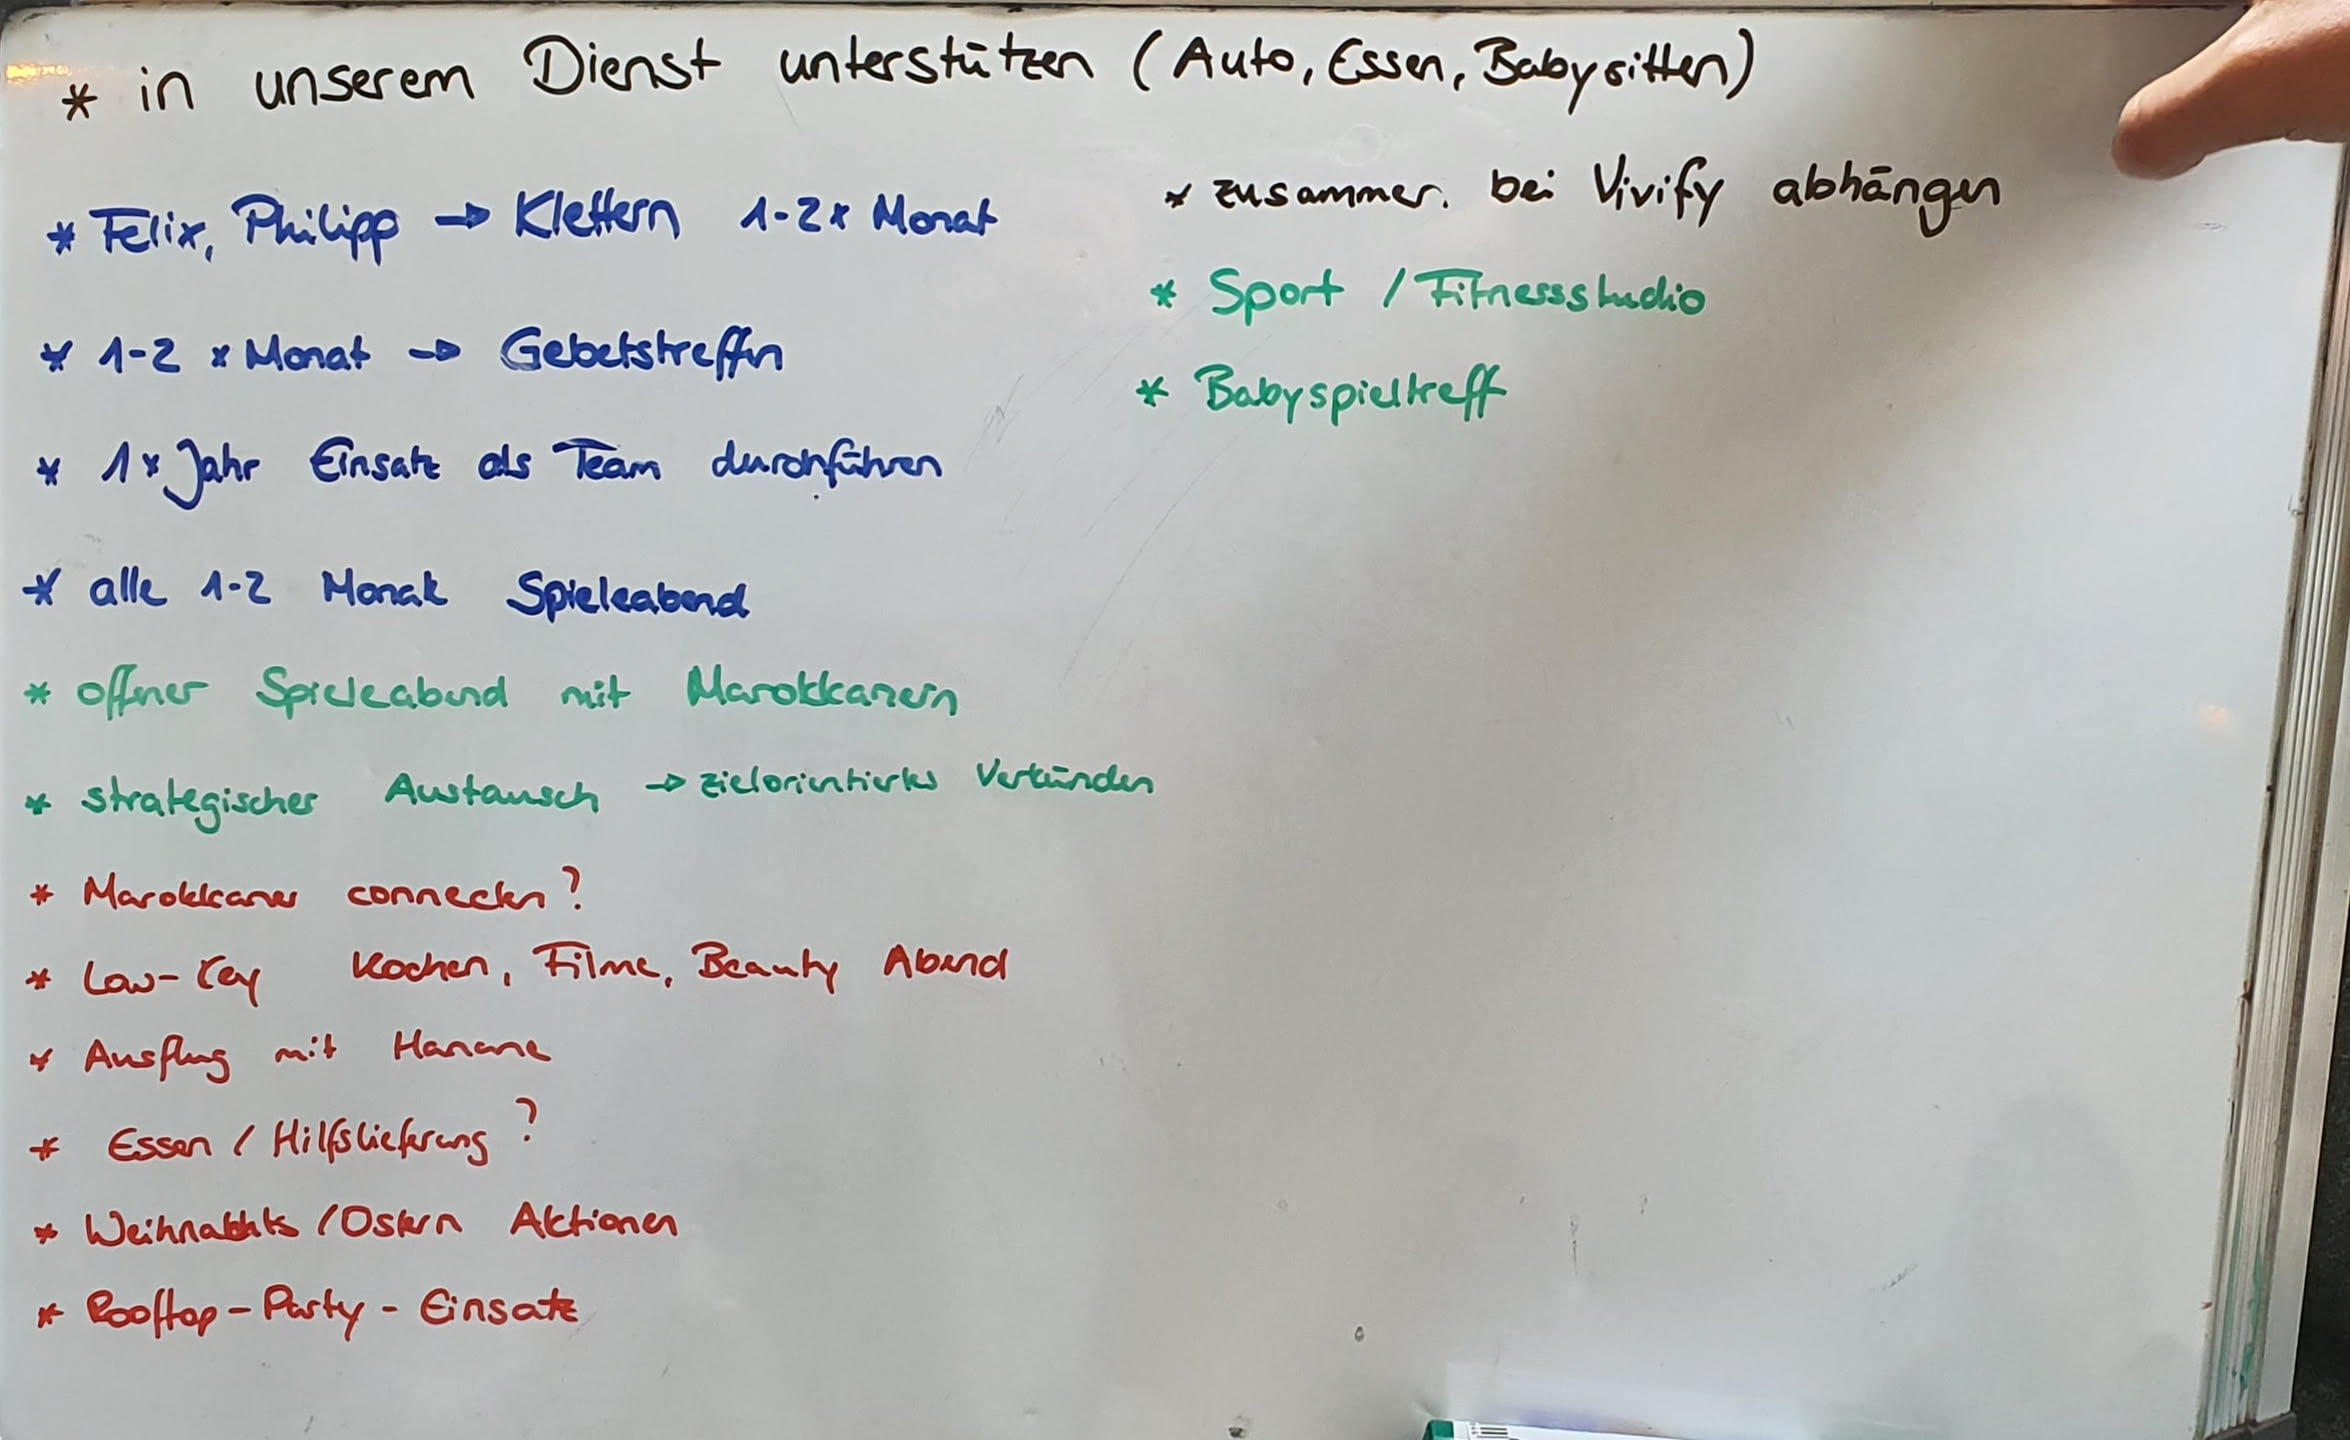 * in unserem Dienst unterstützen (Auto, Essen, Babysitten)
* Felix, Philipp → Klettern 1-2x Monat
* 1-2 x Monat → Gebetstreffen
* 1x Jahr Einsatz als Team durchführen
* alle 1-2 Monate Spieleabend
* offner Spieleabend mit Marokkanern
* strategischer Austausch → zielorientiertes Verkünden
* Marokkaner connecten?
* Low-Key Kochen, Filme, Beauty Abend
* Ausflug mit Hanane
* Essen / Hilfslieferung ?
* Weihnachts / Ostern Aktionen
* Rooftop-Party-Einsatz
* zusammen bei Vivify abhängen
* Sport / Fitnessstudio
* Babyspieltreff